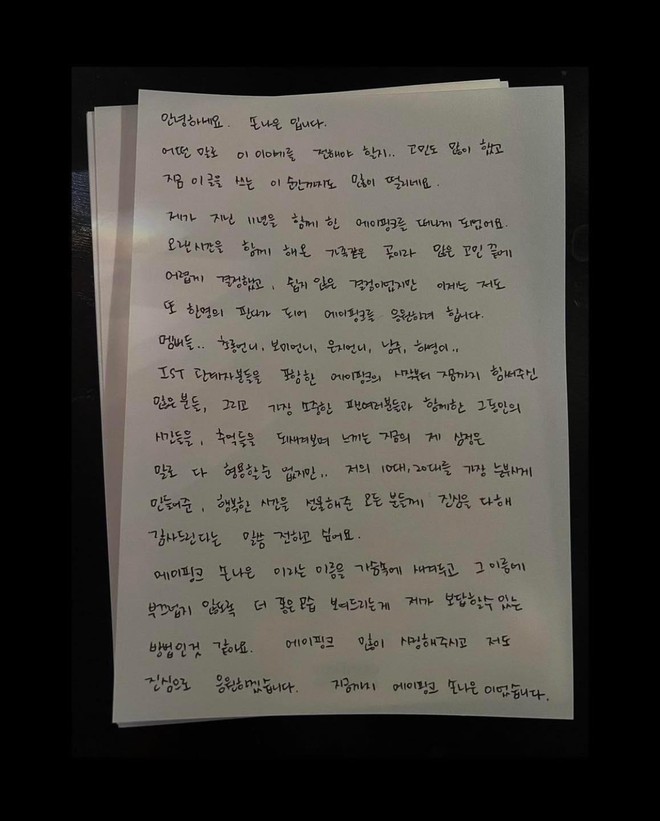 안녕하세요. 손나은 입니다.
어떤 말로 이 이야기를 전해야 할지.. 고민도 많이 했고
지금 이 글을 쓰는 이 순간까지도 많이 떨리네요.
제가 지난 11년을 함께 한 에이핑크를 떠나게 되었어요.
오랜시간을 함께 해온 가족같은 곳이라 많은 고민 끝에
어렵게 결정했고, 쉽지 않은 결정이었지만 이제는 저도
또 한명의 판다가 되어 에이핑크를 응원하려 합니다.
멤버들.. 초롱언니, 보미언니, 은지언니, 남주, 하영이..
IST 관계자분들을 포함한 에이핑크의 시작부터 지금까지 힘써주신
많은 분들, 그리고 가장 소중한 팬여러분들과 함께한 그동안의
시간들을, 추억들을 되새겨보며 느끼는 지금의 제 심정은
말로 다 형용할순 없지만.. 저의 10대, 20대를 가장 눈부시게
만들어준, 행복한 시간을 선물해준 모든 분들께 진심을 다해
감사드린다는 말씀 전하고 싶어요.
에이핑크 손나은 이라는 이름을 가슴속에 새겨두고 그 이름에
부끄럽지 않도록 더 좋은모습 보여드리는게 제가 보답할수있는
방법인것 같아요. 에이핑크 많이 사랑해주시고 저도
진심으로 응원하겠습니다. 지금까지 에이핑크 손나은이었습니다.